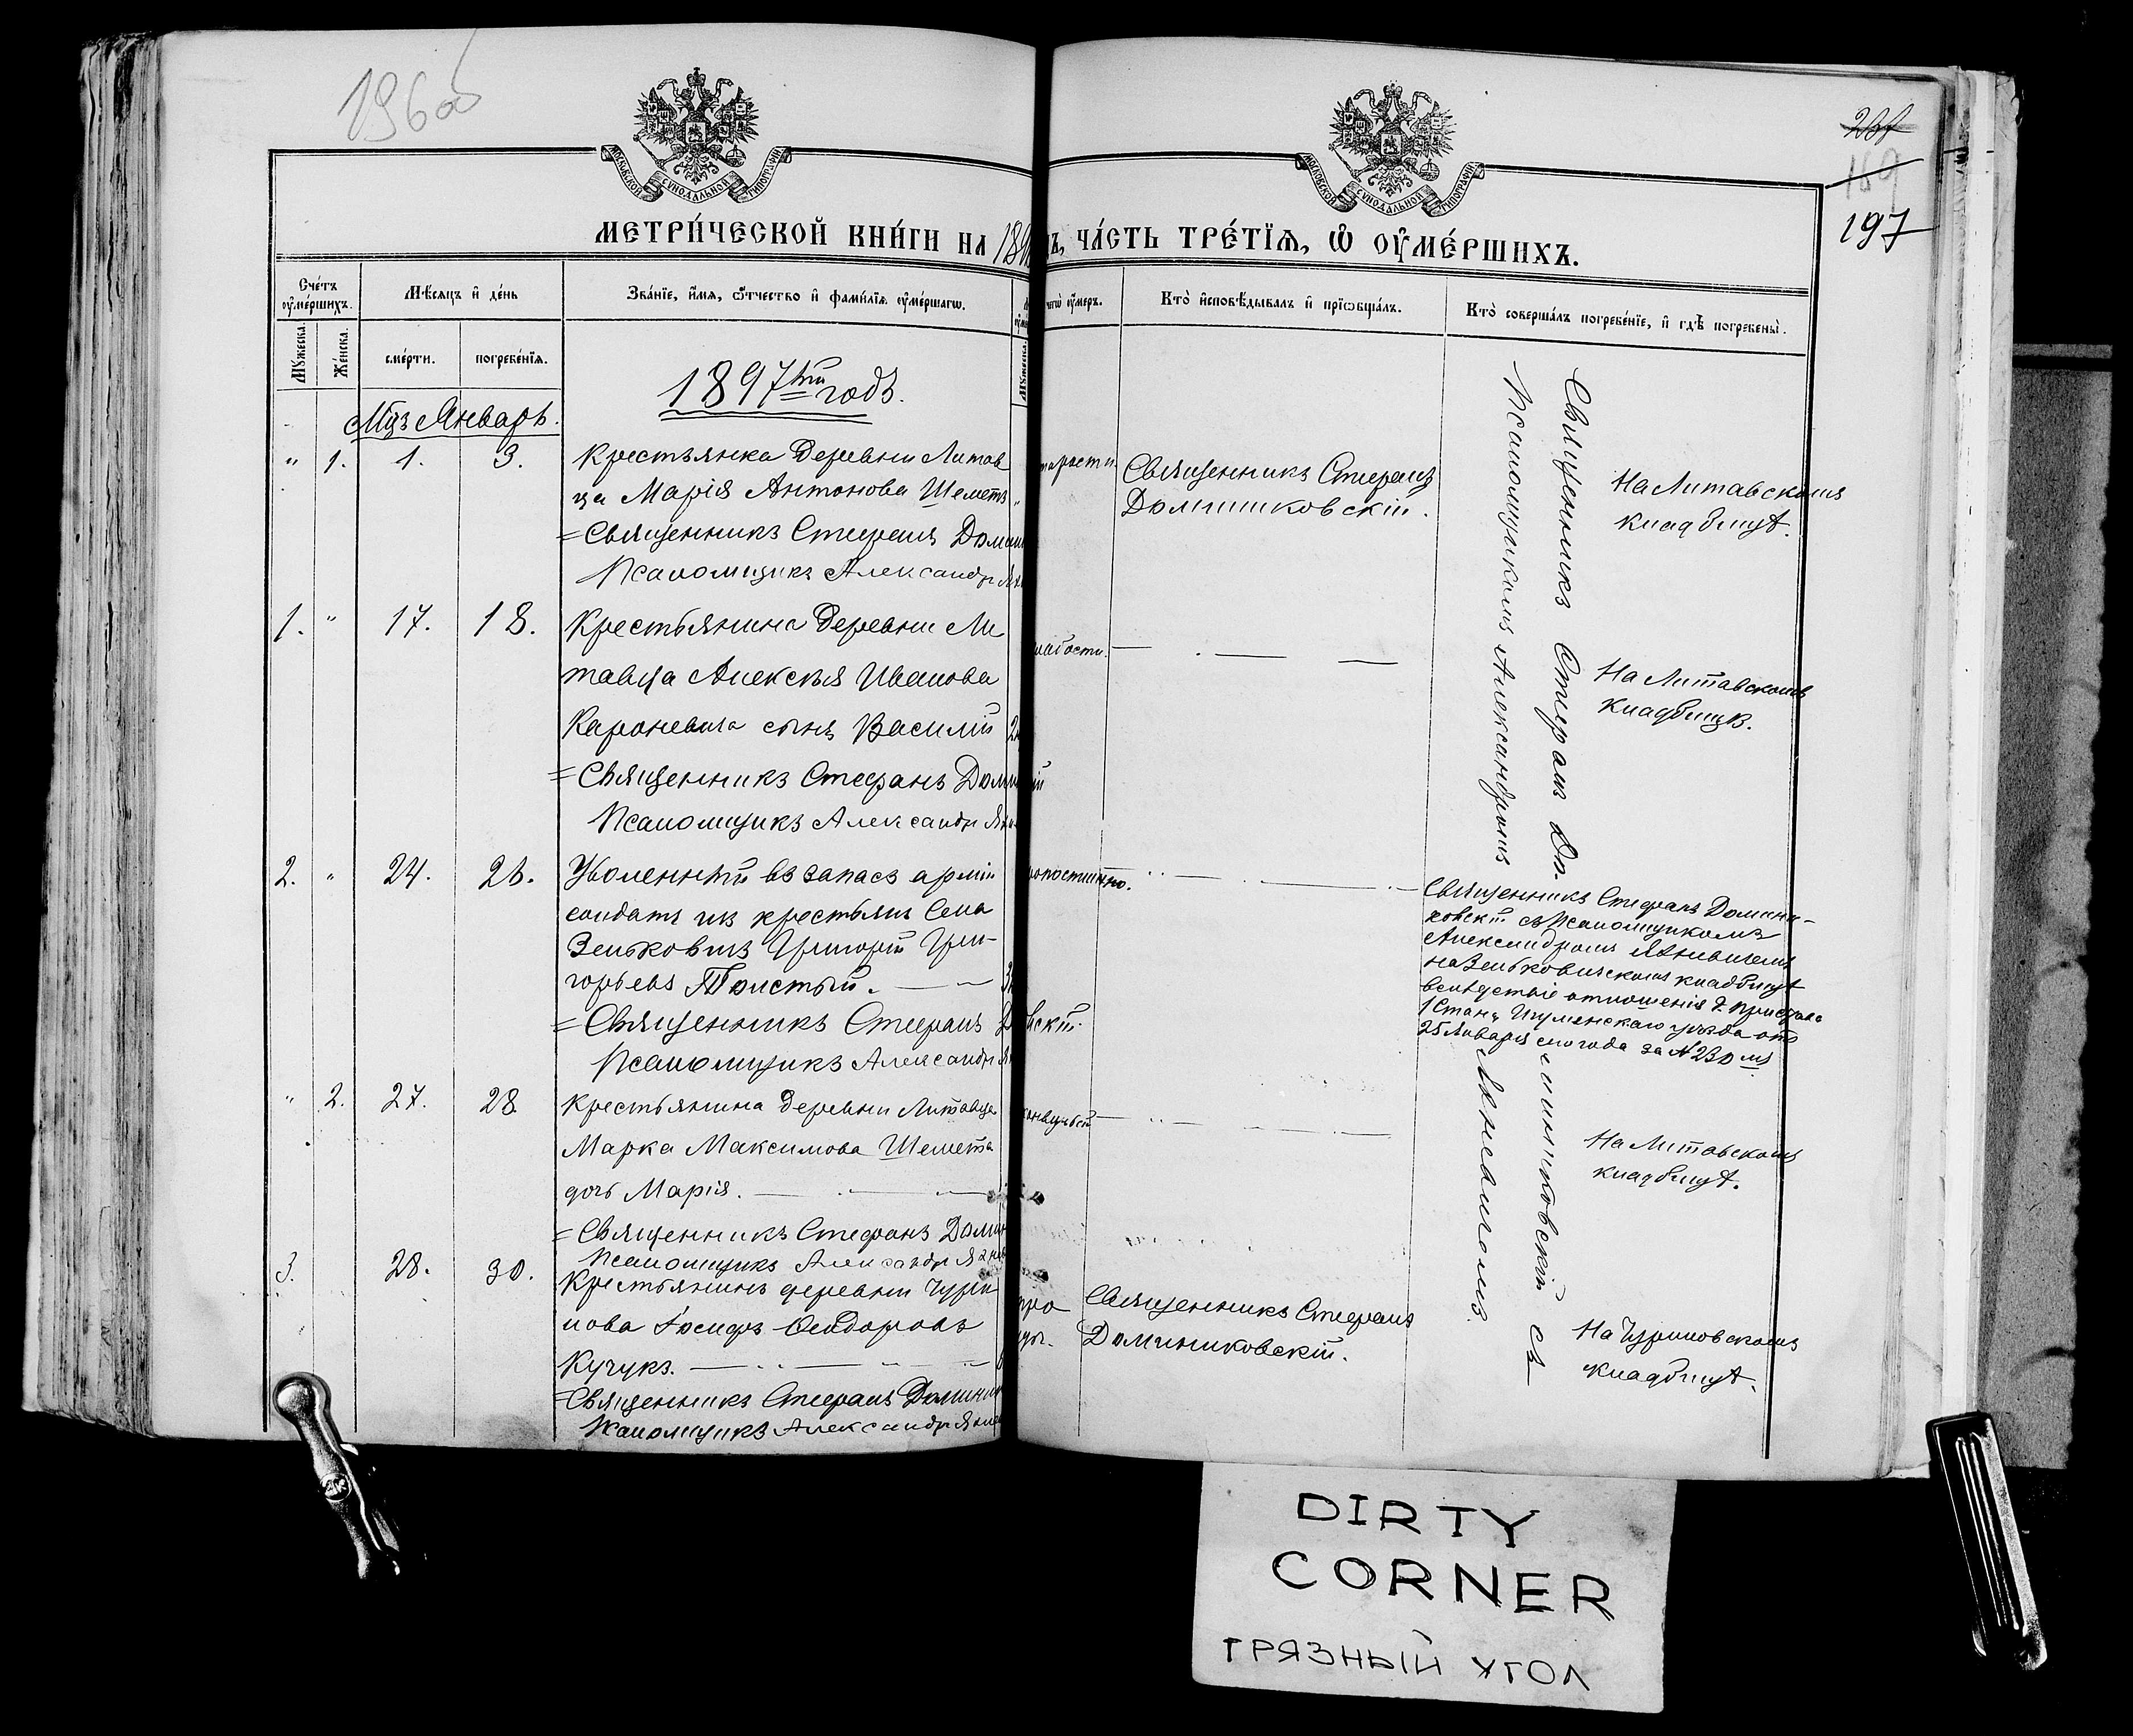 196об
237
169
197
МОСКОВСКОЙ СѴНОДАЛЬНОЙ ТИПОГРАФІИ
МОСКОВСКОЙ СѴНОДАЛЬНОЙ ТИПОГРАФІИ
МЕТРИ́ЧЕСКОЙ КНИ́ГИ НА 189
ЧА́СТЬ ТРЕ́ТЇѦ, Ѡ҆ ОУ҆МЕ́РШИХЪ.
Сче́тъ оу҆ме́ршихъ.
Мѣ́сѧцъ и҆ де́нь
Зва́нїе, и҆́мѧ, ѻ҆́тчество и҆ фами́лїѧ оу҆ме́ршагѡ.
чегѡ̀ оу҆́меръ.
Кто̀ и҆сповѣ́дывалъ и҆ прїѡбща́лъ.
Кто̀ соверша́лъ погребе́нїе, и҆ гдѣ̀ погребены̀.
Мꙋ́жеска.
Же́нска.
сме́рти.
погребе́нїѧ.
Мꙋ́жеска.
1897ый годъ.
Мцъ Январь.
" 1. 1. 3. Крестьянка деревни Литов
ца Марія Антонова Шеметъ
=Священникъ Стефанъ Домин
Псаломщикъ Александръ Ян
старости.
Священникъ Стефанъ
Доминиковскій.
На Литавскомъ
кладбищѣ.
1. " 17. 18. Крестьянина деревни Ли
тавца Алексѣя Иванова
Кароневича сынъ Василій 2
=Священникъ Стефанъ Доминій
Псаломщикъ Александръ Ян
слабости.
На Литавскомъ
кладбищѣ.
2. " 24. 26. Уволенный въ запасъ арміи
солдатъ изъ крестьянъ села
Зеньковичъ Григорій Гри-
горьевъ Толстый.
=Священникъ Стефанъ Д вскій.
Псаломщикъ Александръ Ян
скоропостижно.
Священникъ Стефанъ Домини-
ковскій съ Псаломщикомъ
Александромъ Янсвичемъ
на Зеньковичскомъ кладбищѣ
вслѣдствіе отношенія г. Пристава
1 Стана Игуменскаго уѣзда отъ
25 Января сего года за № 230 мъ
" 2. 27. 28. Крестьянина деревни Литавца
Марка Максимова Шемета
дочь Марія.
=Священникъ Стефанъ Домин
Псаломщикъ Александръ Янов
конвульсій
На Литавскомъ
кладбищѣ.
3. 28. 30. Крестьянинъ деревни Чури
лова Іосифъ Ѳеодоровъ
Кучукъ.
=Священникъ Стефанъ Домини
Псаломщикъ Александръ Янов
Священникъ Стефанъ
Доминиковскій.
На Чуриловскомъ
кладбищѣ.
Священникъ Стефанъ До-
миниковскій съ
Псаломщикомъ Александромъ
DIRTY
CORNER
ГРЯЗНЫЙ УГОЛ